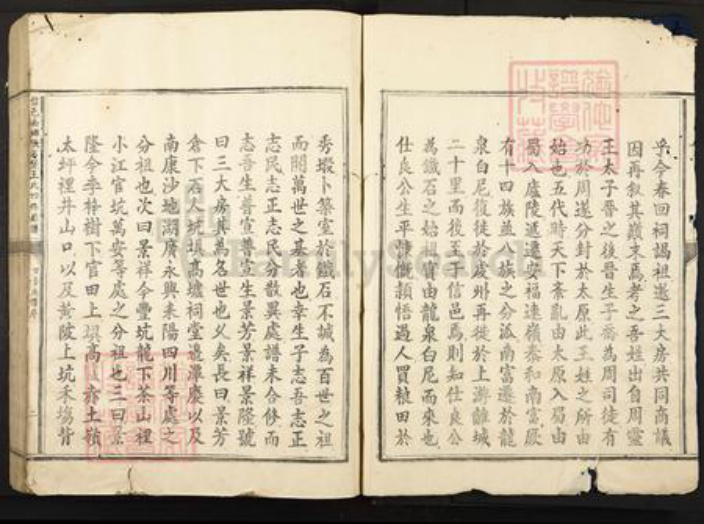 乎今春回祠謁祖遂三大房共同商議
因再叙其巔末焉考之吾姓出自周靈
王太子晉之後晉生子為周司徒有
功於周遂分封於太原此王姓之所由
始也五代時天下紊亂由太原入蜀由
蜀入廬陵遞遷安福遠嶺泰和南富厥
有十四族並八族之分派南富遷於龍
泉白尼復徙於虔州再徙於上游離城
二十里而後至于信邑焉則知仕良公
為鐵石之始祖實由龍泉白尼而來也
仕良公生平慷慨穎悟過人買糧田於
秀塅卜築室於鐵石不誠為百世之祖
而開萬世之基者也幸生子志吾志正
志民志正志民分散異處譜未合修而
志吾生普宣普宣生景芳景祥景隆號
曰三大房其為名世也乂矣長曰景芳
倉下石人坑垻高墟祠堂
南康沙地湖廣永興耒陽四川等處之
分祖也次曰景祥今豐坑龍下茶山裡
小江官坑萬安等處之分祖也三曰景
隆今李梓樹下官田上垻高
太坪裡井山口以及黃陂上坑禾塲背